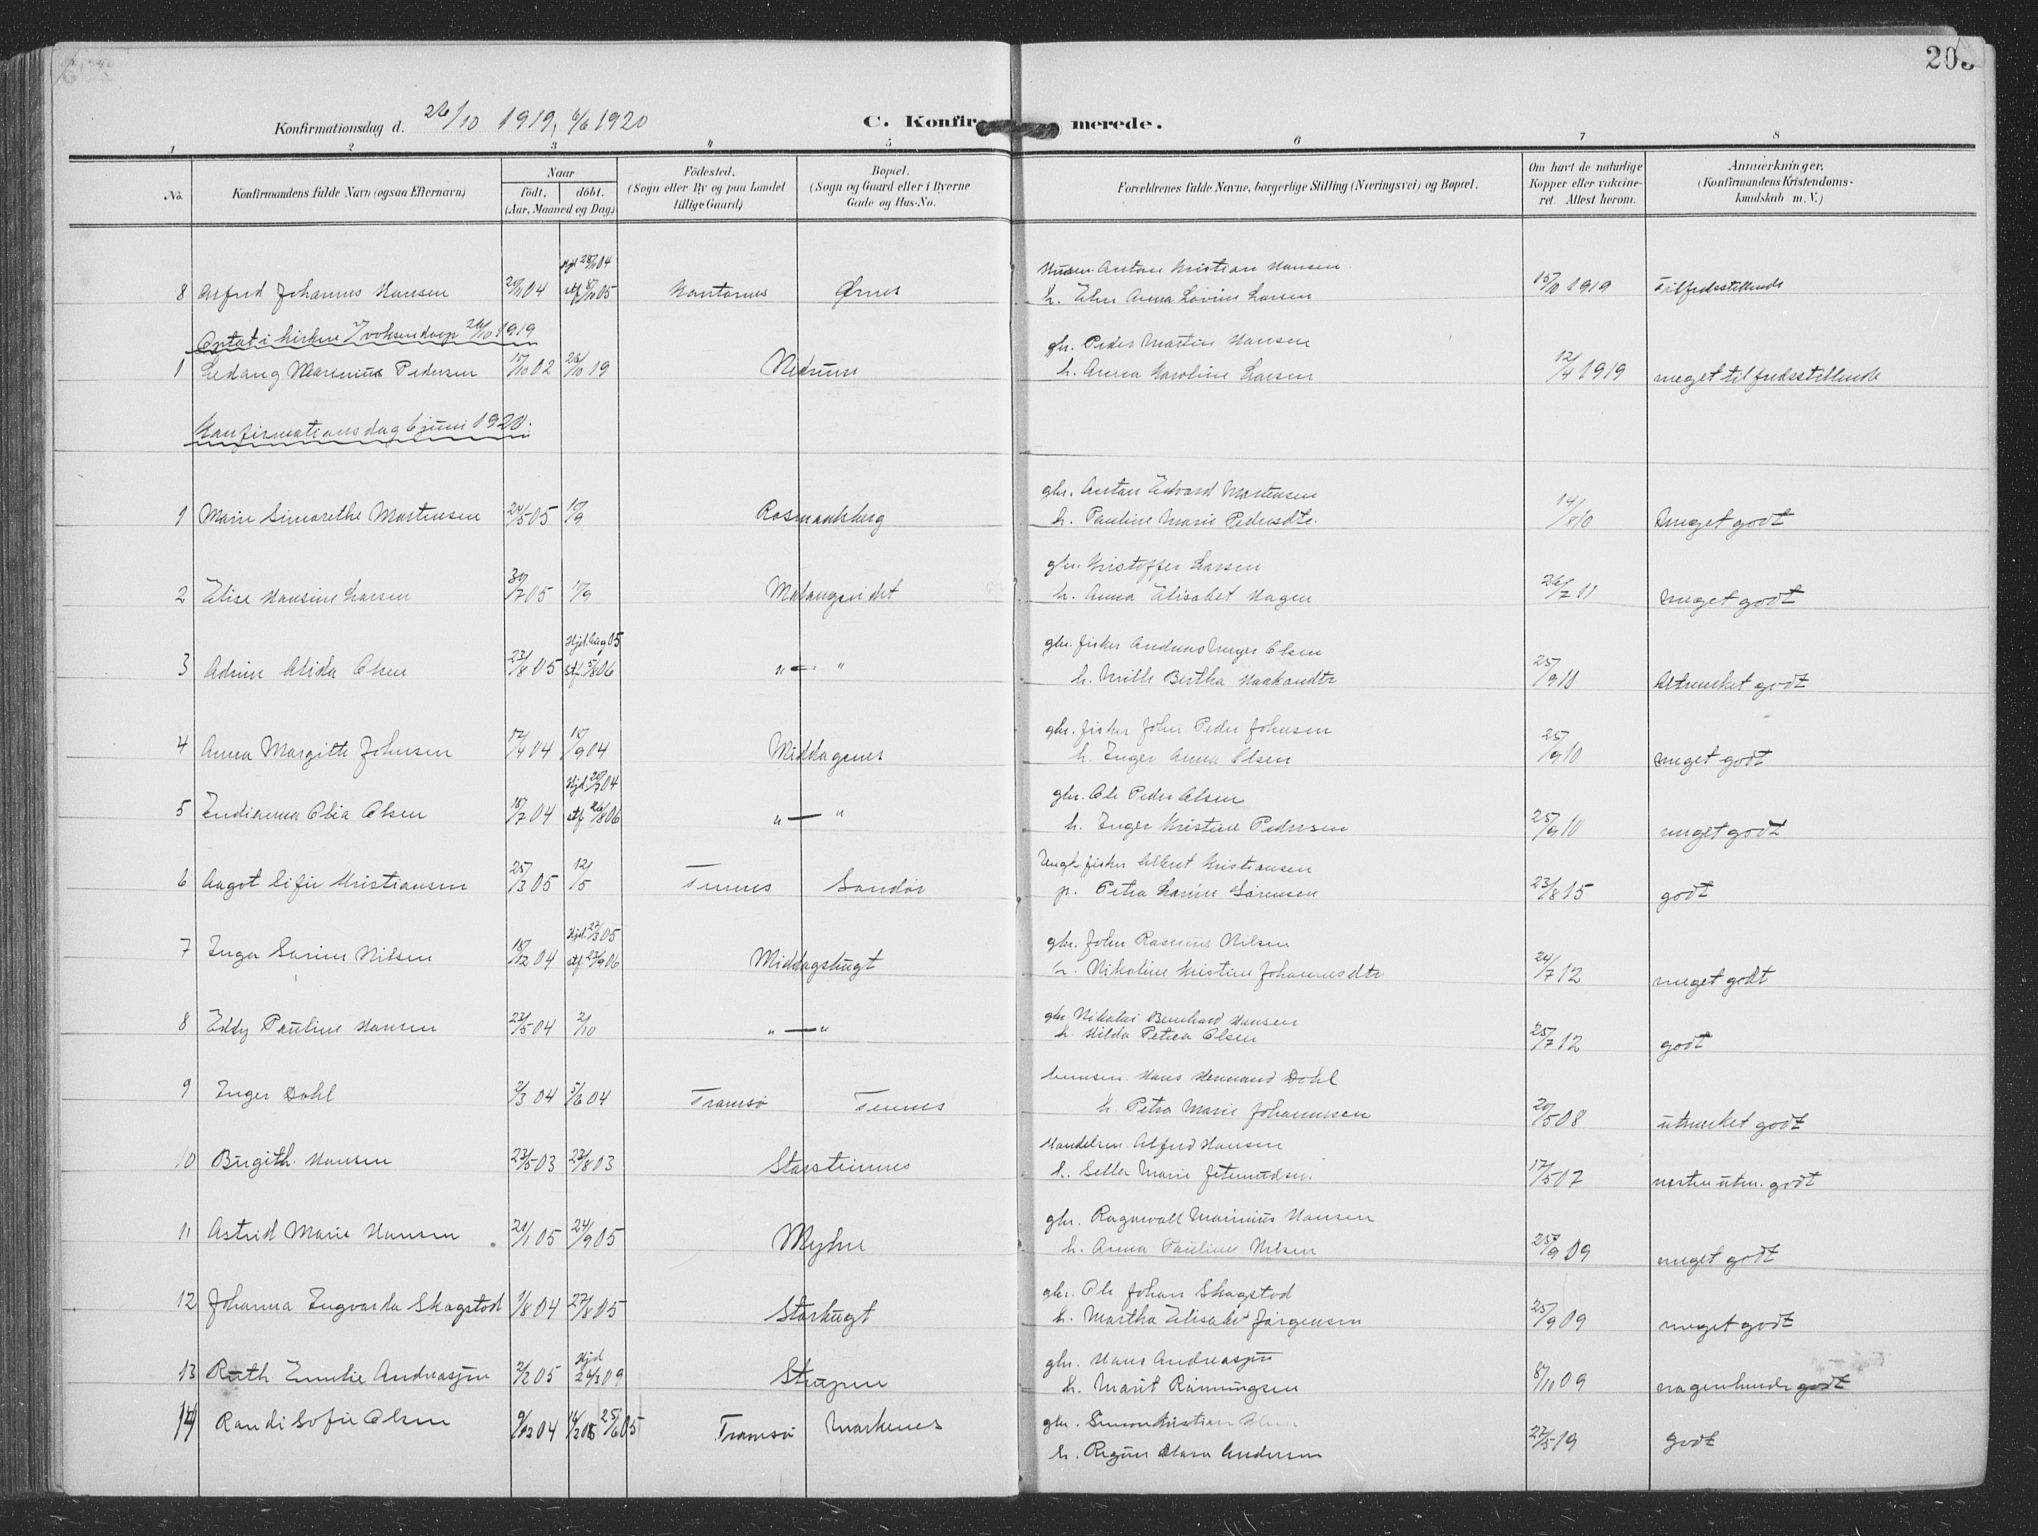 203
Konfirmationsdag d. 26/10 1919, 6/6 1920
C. Konfirmerede.
1 2 3 4 5 6 7 8
No.
Konfirmandens fulde Navn (ogsaa Efternavn)
Naar
födt. döbt.
(Aar, Maaned og Dag)
Födested.
(Sogn eller By og paa Landet
tillige Gaard)
Bopæl.
(Sogn og Gaard eller i Byerne
Gade og Hus-No.
Forældrenes fulde Navne, borgerlige Stilling (Næringsvei) og Bopæl.
Om havt de naturlige
Kopper eller vakcine-
ret. Attest herom.
Anmærkninger,
(Konfirmandens Kristendoms-
kundskab m. V.)
8 Alfred Johannes Hansen 04 Hjd 04 05 Kantornes Ørnes
Anton Kristian Hansen
h. Anna Lovine Larsen 15/10 1919 Tilfredsstillende
Optat i kirken v voksendaap 26/10 1919
1 Ledang Marinius Pedersen 15/10 02 26/10 19 Nedrum
gbr. Peder Martin Hansen
h. Anna Karoline Larsen 12/4 1919 meget tilfredsstillende
Konfirmationsdag 6 juni 1920.
1 Marie Simorethe Mortensen 24/5 05 17/9 Rosmaalsberg
gbr. Anton Edvard Mortensen
h. Pauline Marie Pedersdtr. 14/ 10 meget godt
2 Elise Hansine Larsen 30/7 05 17/9 Malangseidet
gbr. Kristoffer Larsen
h. Anna Elisabet Hagen 26/7 11 meget godt
3 Adrine Alida Olsen 23/8 05 Hjd. Aug 05 stf. 5/8 06 " — "
gbr. fisker Andreas Olsen
h. Mille Bertha Haakondtr 25/9 11 utmerket godt
4 Anna Margithe Johnsen 12/4 04 18/9 04 Middagsnes
gbr. fisker John Peder Johnsen
h. Inger Anna Olsen 25/9 10 meget godt
5 Indianna Olia Olsen 18/7 04 Hjd. 04 stf 26/8 06 " — "
gbr. Ole Peder Olsen
h. Inger Kristine Pedersen 25/9 10 meget godt
6 Aagot Sifie Kristiansen 25/3 05 12/5 Tennes Sandør
Ungk. fisker Albert Kristiansen
p. Petra Karine Sørensen 23/8 15 godt
7 Inga Sarine Nilsen 18/12 04 Hjd. 27/3 05 stf 23/9 06 Middagsbugt
gbr. John Rasmus Nilsen
h. Nikoline Kristine Johannesdtr 24/7 12 meget godt
8 Eddy Pauline Hansen 23/5 04 2/10 " — "
gbr. Nikolai Bernhard Hansen
h. Hilda Petrea Olsen 25/7 12 godt
9 Inger Dahl 2/3 04 5/6 04 Tromsø Tennes
Hans Hermand Dahl
h. Petra Marie Johannessen 20/5 08 utmerket godt
10 Birgith. Hansen 23/5 03 23/8 03 Storsteinnes
Handelsm. Alfred Hansen
h. Selle Marie 17/5 07 nesten utm. godt
11 Astrid Marie Hansen 21/1 05 24/9 05 Myhre
gbr. Ragnvald Marinius Hansen
h. Anna Pauline Nilsen 25/9 09 meget godt
12 Johanna Ingvarda Skogstad 1/8 04 27/8 05 Storbugt
gbr. Ole Johan Skogstad
h. Martha Elisabet Jørgensen 25/9 09 meget godt
13 Ruth Emelie Andreasjen 2/2 05 Hjd 26/3 09 Strupen
gbr. Hans Andreasjen
h. Marit Rönningsen 8/10 09 nogenlunde godt
14 Randi Sofie Olsen 9/12 04 14/2 05 25/6 05 Tromsö Markenes
gbr. Simon Kristian Olsen
h. Regine Clara Andersen 27/5 19 godt